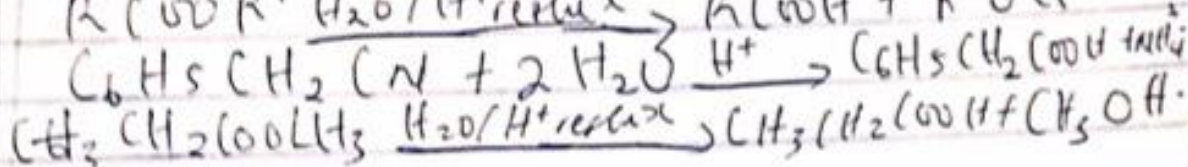 RCOOR H2O/H+ reflux → RCOOH + R OH
C6H5CH2CN + 2H2O H+ → C6H5CH2COOH + NH4+
CH3CH2COOCH3 H2O/H+ reflux → CH3CH2COOH + CH3OH.